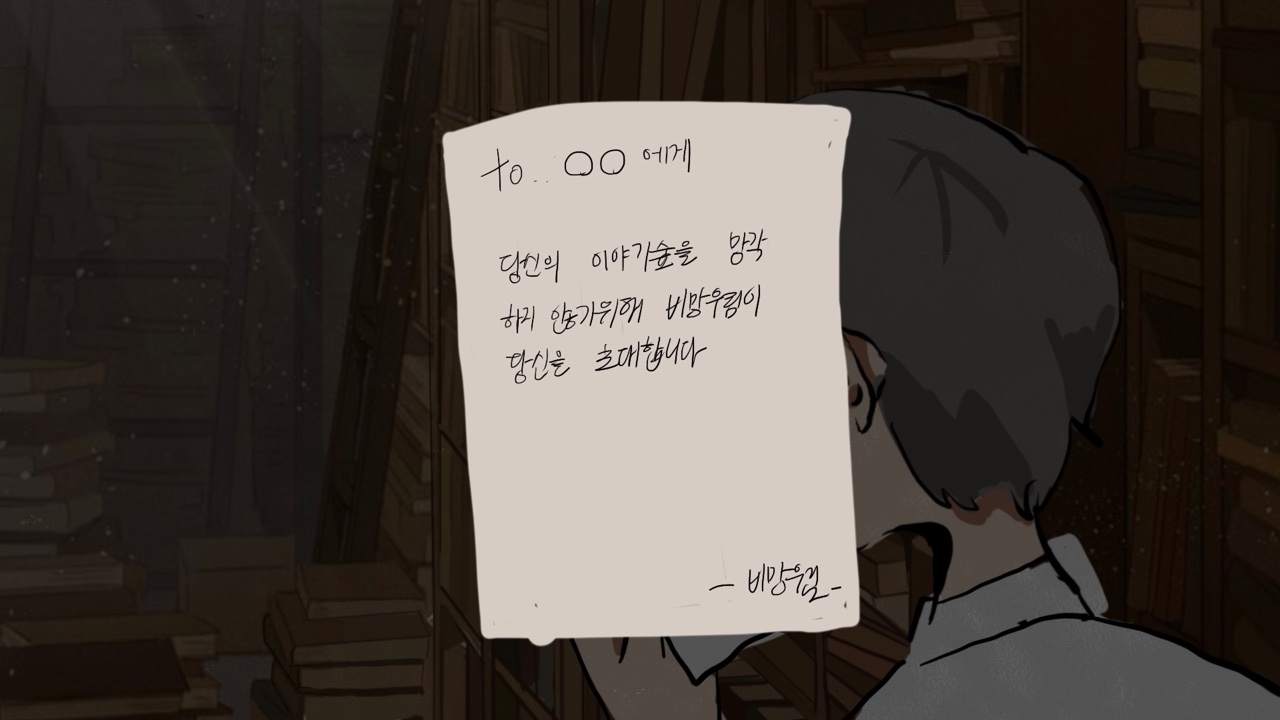 to.. ○○ 에게
당신의 이야기숲을 망각
하지 않기위해 비망우림이
당신을 초대합니다
- 비망우림 -